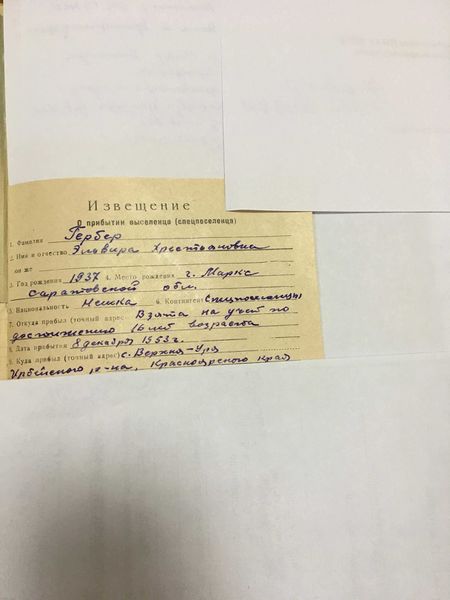 Извещение
О прибытии выселенца (спецпоселенца)
1. Фамилия Гербер
2. Имя и отчество Эльвира Христьяновна
он же
3. Год рождения 1937 4. Место рождения г. Маркс
Саратовской обл.
5. Национальность Немка 6. Контингент Спецпоселенцы
7. Откуда прибыл (точный адрес) Взята на учет по
достижению 16 лет возраста
8. Дата прибытия 8 декабря 1953 г.
9. Куда прибыл (точный адрес) с. Верхня-Уря
Ирбейского р-на, Красноярского края